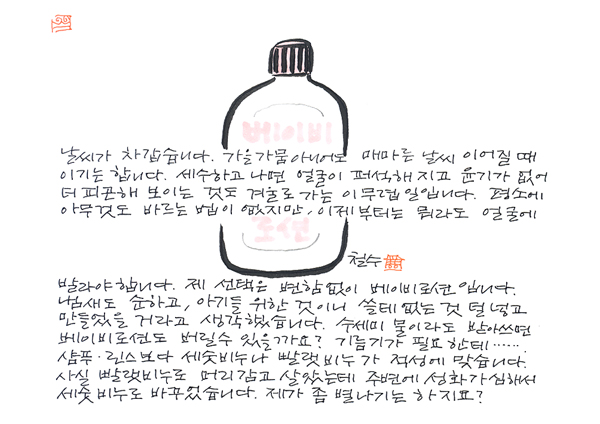 베이비
날씨가 차갑습니다. 가을가뭄아니어도 메마른 날씨 이어질 때
이기는 합니다. 세수하고 나면 얼굴이 퍼석해 지고 윤기가 없어
더 피곤해 보이는 것도 겨울로 가는 이 무렵 일입니다. 평소에
아무것도 바르는 법이 없지만, 이제부터는 뭐라도 얼굴에
로션
철수
발라야 합니다. 제 선택은 변함없이 베이비로션입니다.
냄새도 순하고, 아기들 위한 것이니 쓸데 없는 것 덜 넣고
만들었을 거라고 생각했습니다. 수세미 물이라도 받아쓰면
베이비로션도 버릴수 있을까요? 기름기가 필요한데……
샴푸·린스보다 세숫비누나 빨랫비누가 적성에 맞습니다.
사실 빨랫비누로 머리감고 살았는데 주변에 성화가심해서
세숫비누로 바꾸었습니다. 제가 좀 별나기는 하지요?